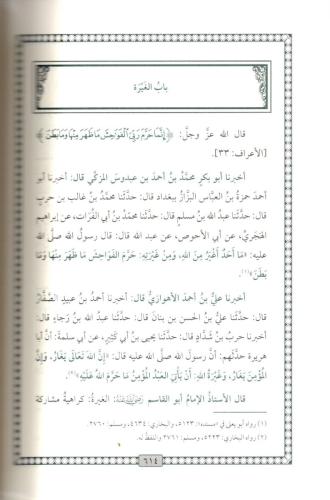 بابُ الغَيْرَة
قال الله عزّ وجلّ: ﴿إِنَّمَا حَرَّمَ رَبِّيَ الْفَوَاحِشَ مَا ظَهَرَ مِنْهَا وَمَا بَطَنَ﴾
[الأعراف: ٣٣].
أخبرنا أبو بكرٍ محمَّدُ بنُ أحمدَ بنِ عبدوسَ المزكّي قال: أخبرنا أبو
أحمدَ حمزةُ بنُ العبَّاسِ البزَّازُ ببغداد قال: حدَّثنا محمَّدُ بنُ غالبِ بنِ حربٍ
قال: حدَّثنا عبدُ الله بنُ مسلمٍ قال: حدَّثنا محمَّدُ بنُ أبي الفُرَات، عن إبراهيمَ
الهَجَريِّ، عن أبي الأحوصِ، عن عبد الله قال: قال رسولُ الله صلَّى الله
عليه: «مَا أَحَدٌ أَغْيَرُ مِنَ اللهِ، وَمِنْ غَيْرَتِهِ: حَرَّمَ الفَوَاحِشَ مَا ظَهَرَ مِنْهَا وَمَا
بَطَنَ»(١).
أخبرنا عليُّ بنُ أحمدَ الأهوازيُّ قال: أخبرنا أحمدُ بنُ عبيدٍ الصَّفَّارُ
قال: حدَّثنا عليُّ بنُ الحسنِ بنِ بنانٍ قال: حدَّثنا عبدُ الله بنُ رجاءٍ قال:
أخبرنا حربُ بنُ شدَّادٍ قال: حدَّثنا يحيى بنُ أبي كَثيرٍ، عن أبي سلمةَ: أنَّ أبا
هريرةَ حدَّثهم: أنَّ رسولَ الله صلَّى الله عليه قال: «إِنَّ اللهَ تَعَالَى يَغَارُ، وَإِنَّ
المُؤْمِنَ يَغَارُ، وَغَيْرَةُ اللهِ: أَنْ يَأْتِيَ العَبْدُ المُؤْمِنُ مَا حَرَّمَ اللهُ عَلَيْهِ»(٢).
قال الأستاذُ الإمامُ أبو القاسم رَضِيَ اللهُ عَنْهُ: الغيرةُ: كراهيةُ مشاركة
(١) رواه أبو يعلى في «مسنده»: ٥١٢٣، والبخاري: ٤٦٣٤، ومسلم: ٢٧٦٠.
(٢) رواه البخاري: ٥٢٢٣، ومسلم: ٢٧٦١ واللفظ له.
٦١٤